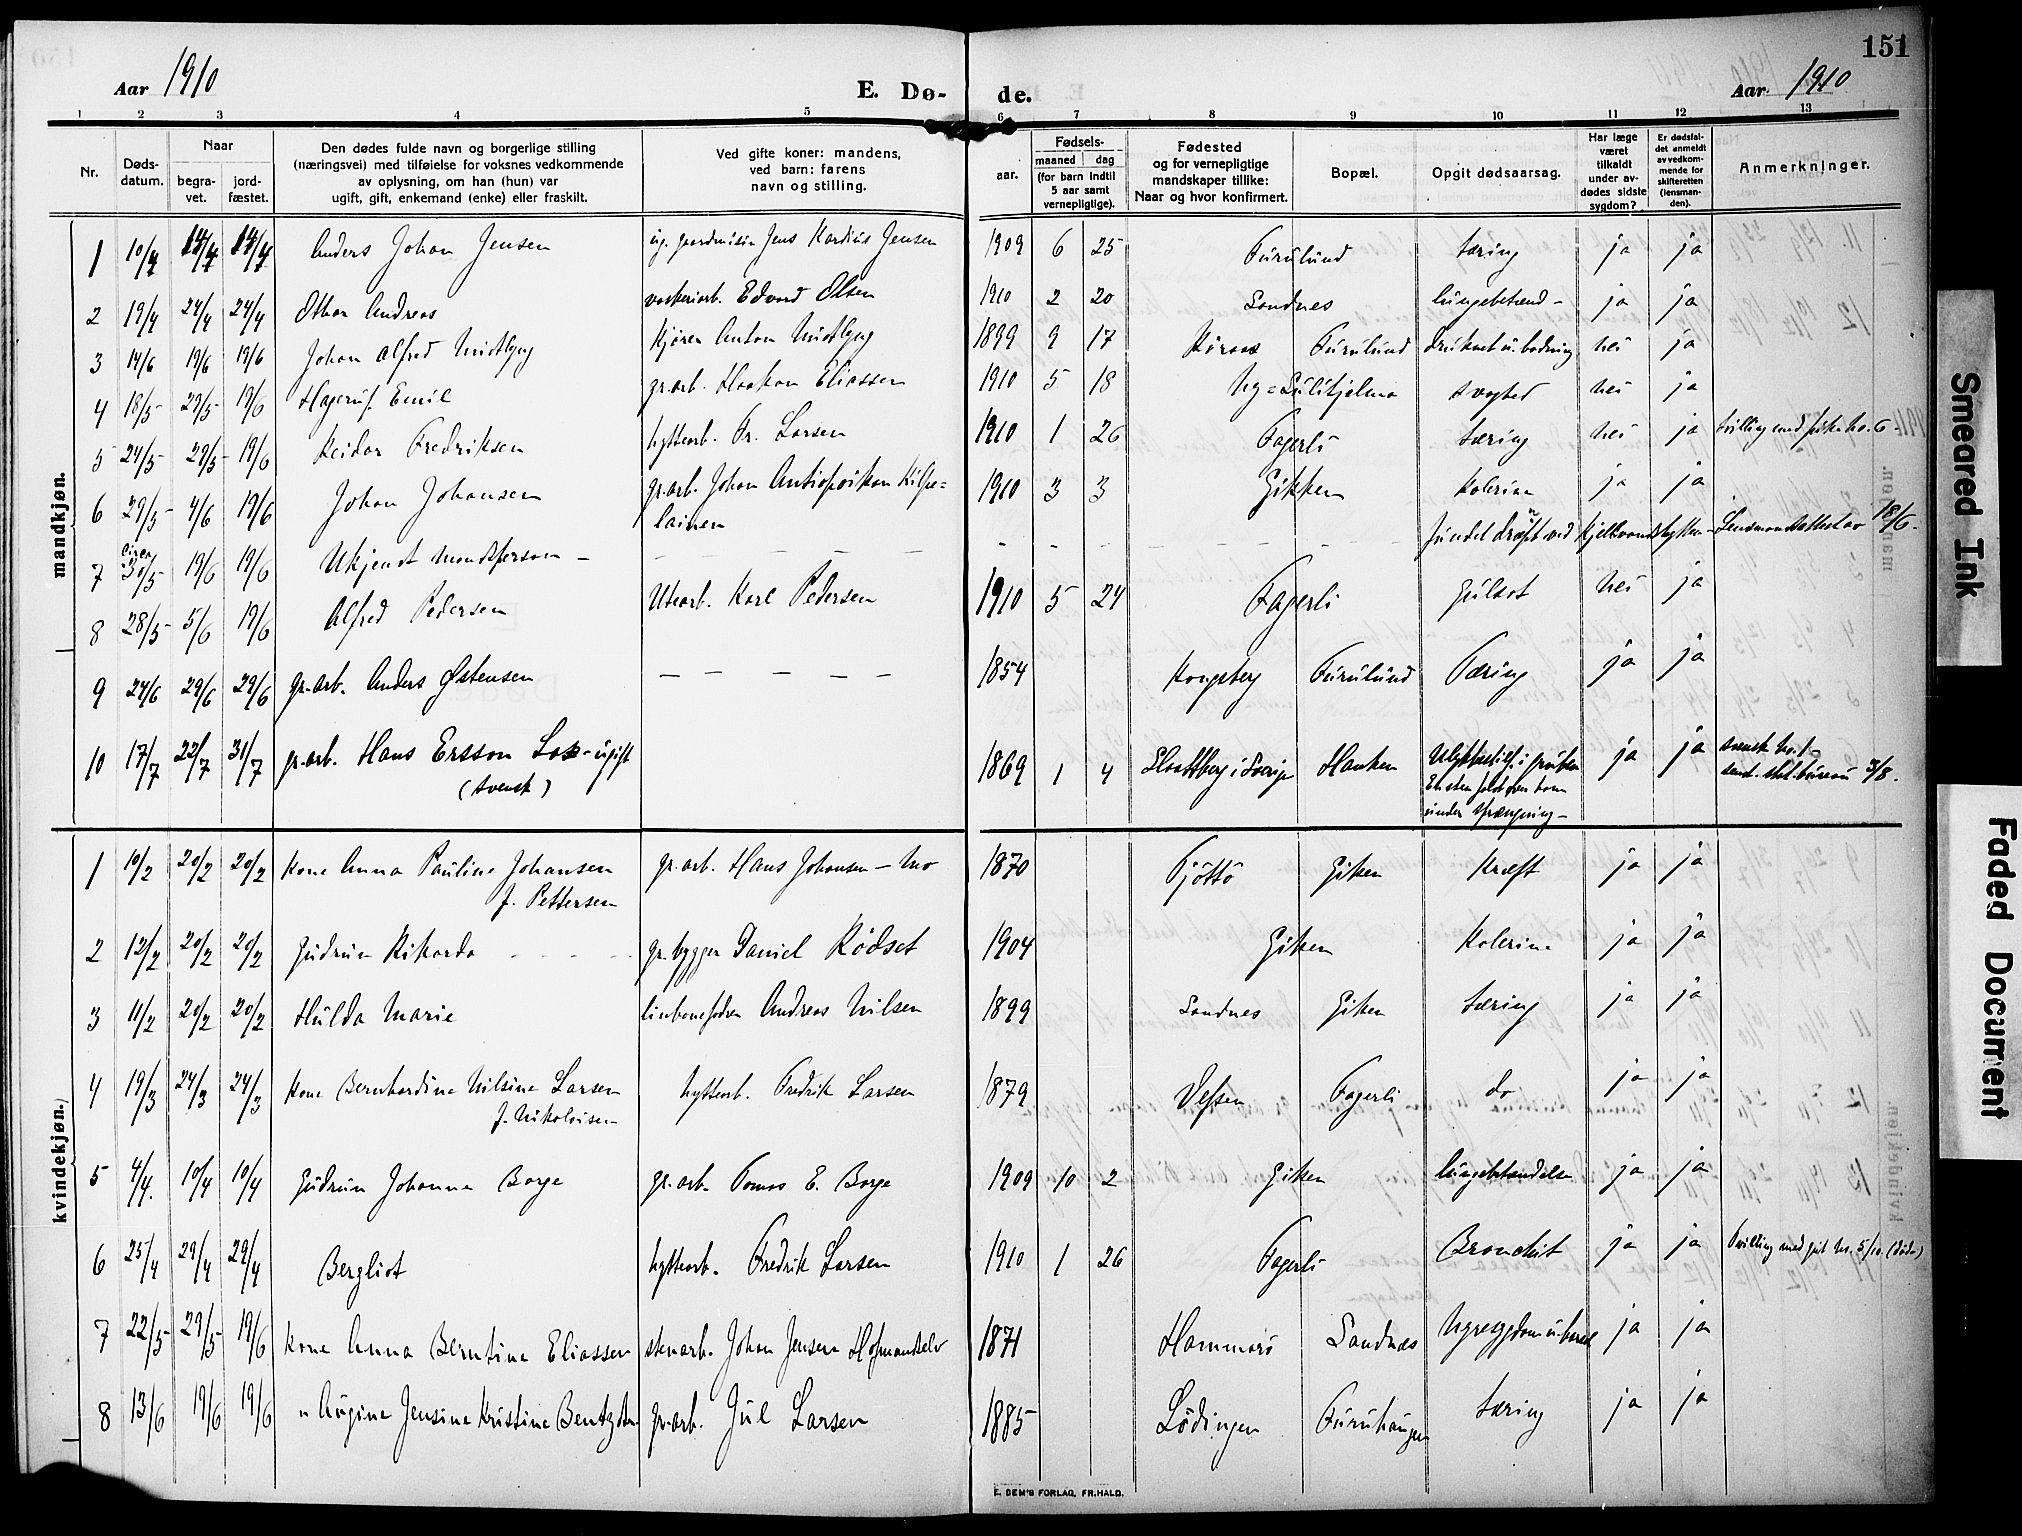 151
Aar 1910
E. Dø- de.
Aar 1910
1 2 3 4 5 6 7 8 9 10 11 12 13
Nr.
Døds-
datum.
Naar
begra-
vet.
jord-
fæstet.
Den dødes fulde navn og borgerlige stilling
(næringsvei) med tilføielse for voksnes vedkommende
av oplysning, om han (hun) var
ugift, gift, enkemand (enke) eller fraskilt.
Ved gifte koner: mandens,
ved barn: farens
navn og stilling.
aar.
Fødsels-
maaned dag
(for barn indtil
5 aar samt
vernepligtige).
Fødested
og for vernepligtige
mandskaper tillike:
Naar og hvor konfirmert.
Bopæl.
Opgit dødsaarsag.
Har læge
været
tilkaldt
under av-
dødes sidste
sygdom?
Er dødsfal-
det anmeldt
av vedkom-
mende for
skifteretten
(lensman-
den).
Anmerkninger.
mandkjøn.
1 10/4 14/4 14/4 Anders Johan Jensen ug. Jens Kordius Jensen 1909 6 25 Furulund tæring ja ja
2 19/4 24/4 24/4 Othar Andreas vaskeriarb. Edvard Olsen 1910 2 20 Sandnes lungebetænd- ja ja
3 14/6 19/6 19/6 Johan Alfred Midtlyng kjører Anton Midtlyng 1899 9 17 Röraas Furulund druknet u. badning nei ja
4 18/5 29/5 19/6 Hageruf Emil gr.arb. Haakon Eliassen 1910 5 18 Ny-Sulitjelma svaghed nei ja
5 24/5 29/5 19/6 Reidar Fredriksen hyttearb. Fr. Larsen 1910 1 26 Fagerli tæring nei ja tvilling med pike no. 6
6 29/5 4/6 19/6 Johan Johansen gr.arb. Johan Kilpe-
lainen 1910 3 3 Giken Kolerine ja ja
7 circa 30/5 19/6 19/6 Ukjendt mandsperson - - - - - fundet dræpt ved Kjelvandshytten - Lensmandsattest av 18/6.
8 28/5 5/6 19/6 Alfred Pedersen Utearb. Karl Pedersen 1910 5 24 Fagerli Gulsot nei ja
9 24/6 29/6 29/6 gr.arb. Anders Østensen - - - - - 1854 Kongsberg Furulund Tæring ja ja
10 17/7 22/7 31/7 gr.arb. Hans Ersson Lok - ugift
(svensk) 1869 1 4 i Sverige Hanken Ulykkestilf. i gruben
En sten faldt over ham
under sprængning - ja ja svensk no. 1 -
sendt stat. bureau 3/8.
kvindekjøn.
1 10/2 20/2 20/2 Kone Anna Pauline Johansen
f. Pettersen gr.arb. Hans Johansen - Mo 1870 Tjöttö Giken Kræft ja ja
2 12/2 20/2 20/2 Gudrun Rikarda - - - - gr.bygger Daniel Rödset 1904 Giken Kolerine ja ja
3 11/2 20/2 20/2 Hulda Marie Andreas Nilsen 1899 Sandnes Giken tæring ja ja
4 19/3 24/3 24/3 Kone Bernhardine Nilsine Larsen
f. Nikolaisen hyttearb. Fredrik Larsen 1879 Vefsen Fagerli do ja ja
5 4/4. 10/4 10/4 Gudrun Johanne Borge gr.arb. Tomas E. Borge 1909 10 2 Giken lungebetændelse ja ja
6 25/4 29/4 29/4 Bergliot hyttearb. Fredrik Larsen 1910 1 26 Fagerli Bronchit ja ja Tvilling med gut no. 5/10. (døde)
7 22/5 29/5 19/6 Kone Anna Berntine Eliassen stenarb. Johan Jensen 1871 Hammarö Sandnes Nyresygdom u. barsel ja ja
8 13/6 19/6 19/6 " Augine Jensine Kristine Bentzdtr. gr.arb. Jul Larsen 1885 Lödingen Furuhaugen tæring ja ja
E. DEM'S FORLAG, FR. HALD.
Smeared Ink
Faded Document